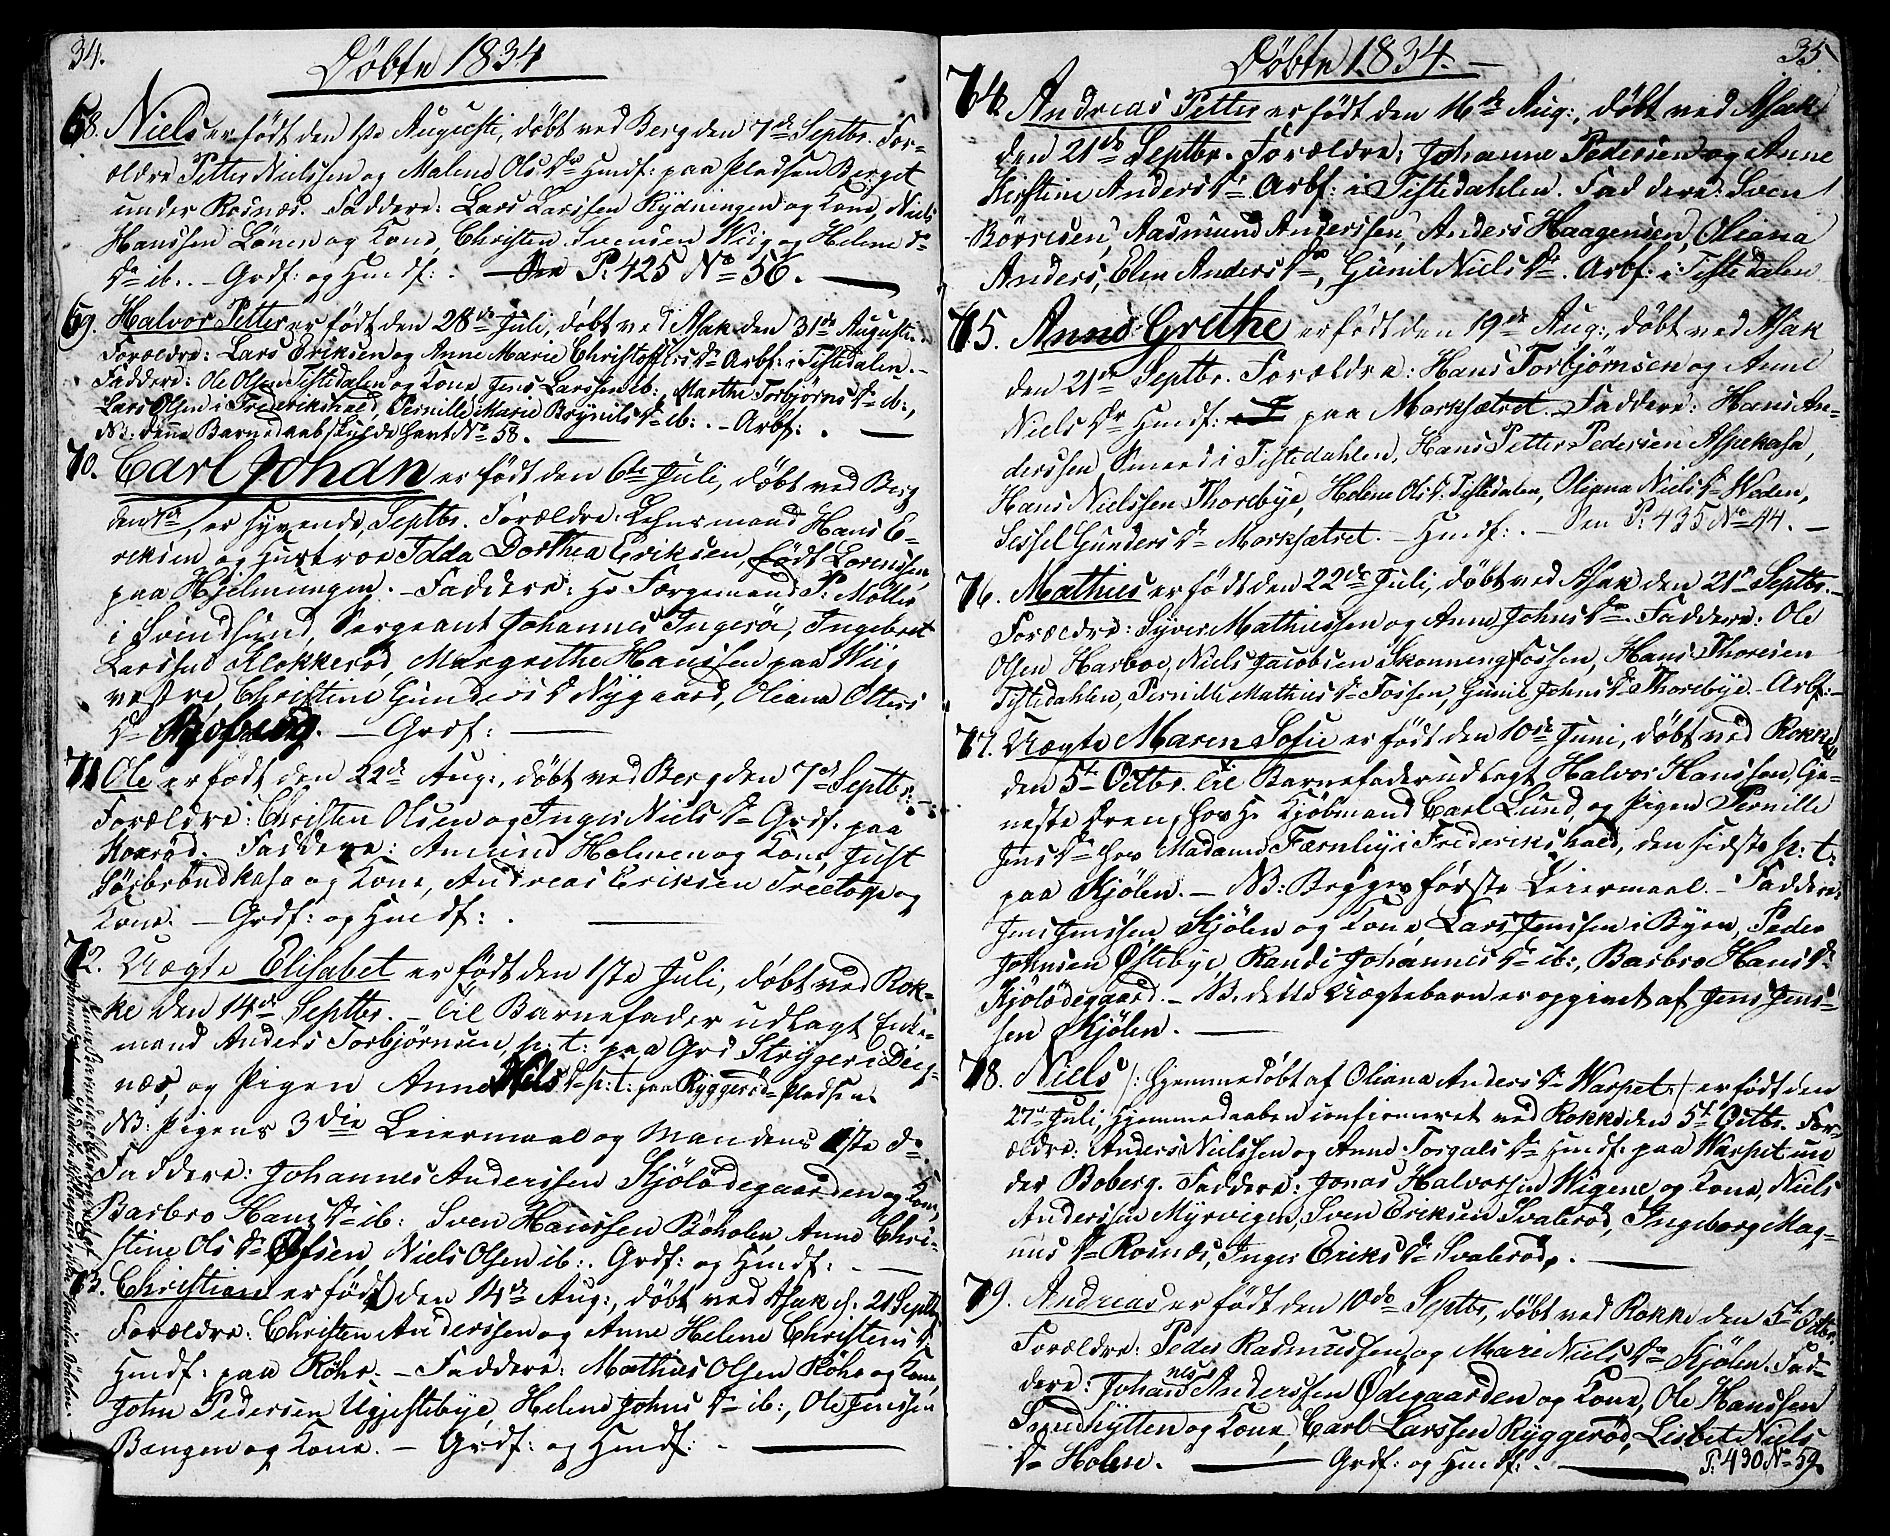 34.
Döbte 1834
68. Niels er født den 1ste Augusti, døbt ved Berg den 7de Septbr. For-
ældre Petter Nielssen og Malene Ols Dr Husmf: paa Pladsen Berget
under Rosnæs. Faddere: Lars Larssen Rydningen og Kone, Niels
Hanssen Lönen og Kone, Christen Svensen Wiig og Helene do
Dr ib: - Grdf: og Husmf: . P: 425 No 56.
69. Halvor Petter er født den 28de Juli, døbt ved Asak den 31de Augusti.
Forældre: Lars Eriksen og Anne Marie Christoffers Dr Arbf: i Tistedalen.
Faddere: Ole Olsen Tistedalen og Kone, Jens Larssen ib:, Marthe Torbjørns Dr ib:,
Lars Olsen i Frederikshald, Pernille Marie Brynils Dr ib: . - Arbf: .
NB: denne Barnedaab skulde havt No 58.
70. Carl Johan er født den 6te Juli, døbt ved Berg
den 7de, er syvende, Septbr. Forældre: Lehnsmand Hans E-
riksen og Hustroe Idda Dorthea Eriksen, født Lorentsen
paa Hjelmungen. - Faddere: Hr Færgemand P: Møller
i Svindsund, Sergeant Johannes Ingerøe, Ingebret
Larssen Klokkerød, Margrethe Hanssen paa Wiig
vestre, Christine Gunders D Nygaard, Oliana Otters
Dr . - Grdf:
71 Ole er født den 22de Aug:, døbt ved Berg den 7de Septbr.
Forældre: Christen Olsen og Inger Niels Dr Grdf: paa
Roxrød. Faddere: Amund Holmen og Kone, Just
Sørbrødkasa og Kone, Andreas Eriksen Treetorp og
Kone. - Grdf: og Husmdf: .
72. Uægte Elisabet er født den 1ste Juli, døbt ved Rok-
ke den 14de Septbr. - Til Barnefader udlagt Enke-
mand Anders Torbjørnsen, p: t: paa Grd Stryger i Dig-
næs, og Pigen Anne Nils Dr p: t: paa Ryggerød-Pladsen.
NB: Pigens 3die Leiermaal og Mandens 1ste do
Faddere: Johannes Anderssen Kjölödegaarden og Kone,
Barbro Hans Dr ib: Sven Hanssen Böholen, Anne Chri-
stine Ols Dr Ofsen, Niels Olsen ib: . Grdf: og Husmdf:
73. Christian er født den 14de Aug:, døbt ved Asak d. 21 Septbr.
Forældre: Christen Anderssen og Anne Helene Christens D
Husmdf: paa Röhr. - Faddere: Mathias Olsen Röhr og Kone,
John Pedersen Ugjestebye, Helene Johns Dr ib:, Ole Jenssen
Bængen og Kone. - Grdf: og Husmdf:
35.
Döbte 1834.
74. Andreas Petter er født den 16de Aug:, døbt ved Asak
den 21de Septbr. Forældre: Johanne Pedersen og Anne
Kirstine Anders Dr Arbf: i Tistedahlen. Faddere: Sven
Börresen, Aasmund Anderssen, Anders Haagensen, Oliana
Anders, Elen Anders Dr, Gunil Niels Dr. Arbf: i Tistedalen
75. Anne Grethe er født den 19de Aug:, døbt ved Asak
den 21de Septbr. Forældre: Hans Torbjørnsen og Anne
Niels Dr Husmf: paa Marksætret. Faddere: Hans An-
derssen Smed i Tistedahlen, Hans Petter Pedersen Aspekasa,
Hans Nielssen Thorebye, Helene Ols D. Tistedalen, Oliana Niels Dr Weden,
Sessel Gunders Dr Marksætret. - Husmf: . - Sen P: 435 No 44. -
76. Mathies er født den 22de Juli, døbt ved Asak den 21de Septbr.
Forældre: Syver Mathiessen og Anne Johns Dr. Faddere: Ole
Olsen Harboe, Niels Jacobsen Skonningsfossen, Hans Thoresen
Tistedahlen, Pernille Mathies Dr Fossen, Gunil Johns D Thorebye - Arbf:
77. Uægte Maren Sofie er født den 10de Juni, døbt ved Rokke
den 5te Octbr. Til Barnefader udlagt Halvor Hanssen, Tje-
neste Dreng hos Hr Kjøbmand Carl Lund, og Pigen Pernille
Jens Dr hos Madame Færnley i Frederikshald, den sidste p: t:
paa Kjölen. - NB: Begges første Leiermaal. - Faddere:
Jens Jenssen Kjölen og Kone, Lars Jenssen i Byen, Peder
Johnsen Östebye, Randi Johannes Dr ib:, Barbro Hans Dr
Kjölödegaard. - NB. dette Uægtebarn er opgivet af Jens Jens-
sen Kjölen.
78. Niels /: Hjemmedøbt af Oliana Anders Dr Warpet :/ er født den
27de Juli, Hjemmedaaben confirmeret ved Rokke den 5te Octbr. For-
ældre: Anders Nielssen og Anne Torgals Dr Husmf: paa Warpet un
der Boberg. Faddere: Jonas Halvorssen Wigene og Kone, Niels
Anderssen Myrvigen, Sven Eriksen Svalerød, Ingeborg Mag-
nus Dr Rosnæs, Inger Eriks Dr Svalerød.
79. Andreas er født den 10de Septbr, døbt ved Rokke den 5te Octbr.
Forældre: Peder Rasmussen og Mari Niels Dr Kjölen. Fad-
dere: Johannes Anderssen Ödegaarden og Kone, Ole Hanssen
og Kone, Carl Larssen Ryggerød, Lisbet Niels
Dr Holen. Grdf: og Husmf: . P: 490 No 59.